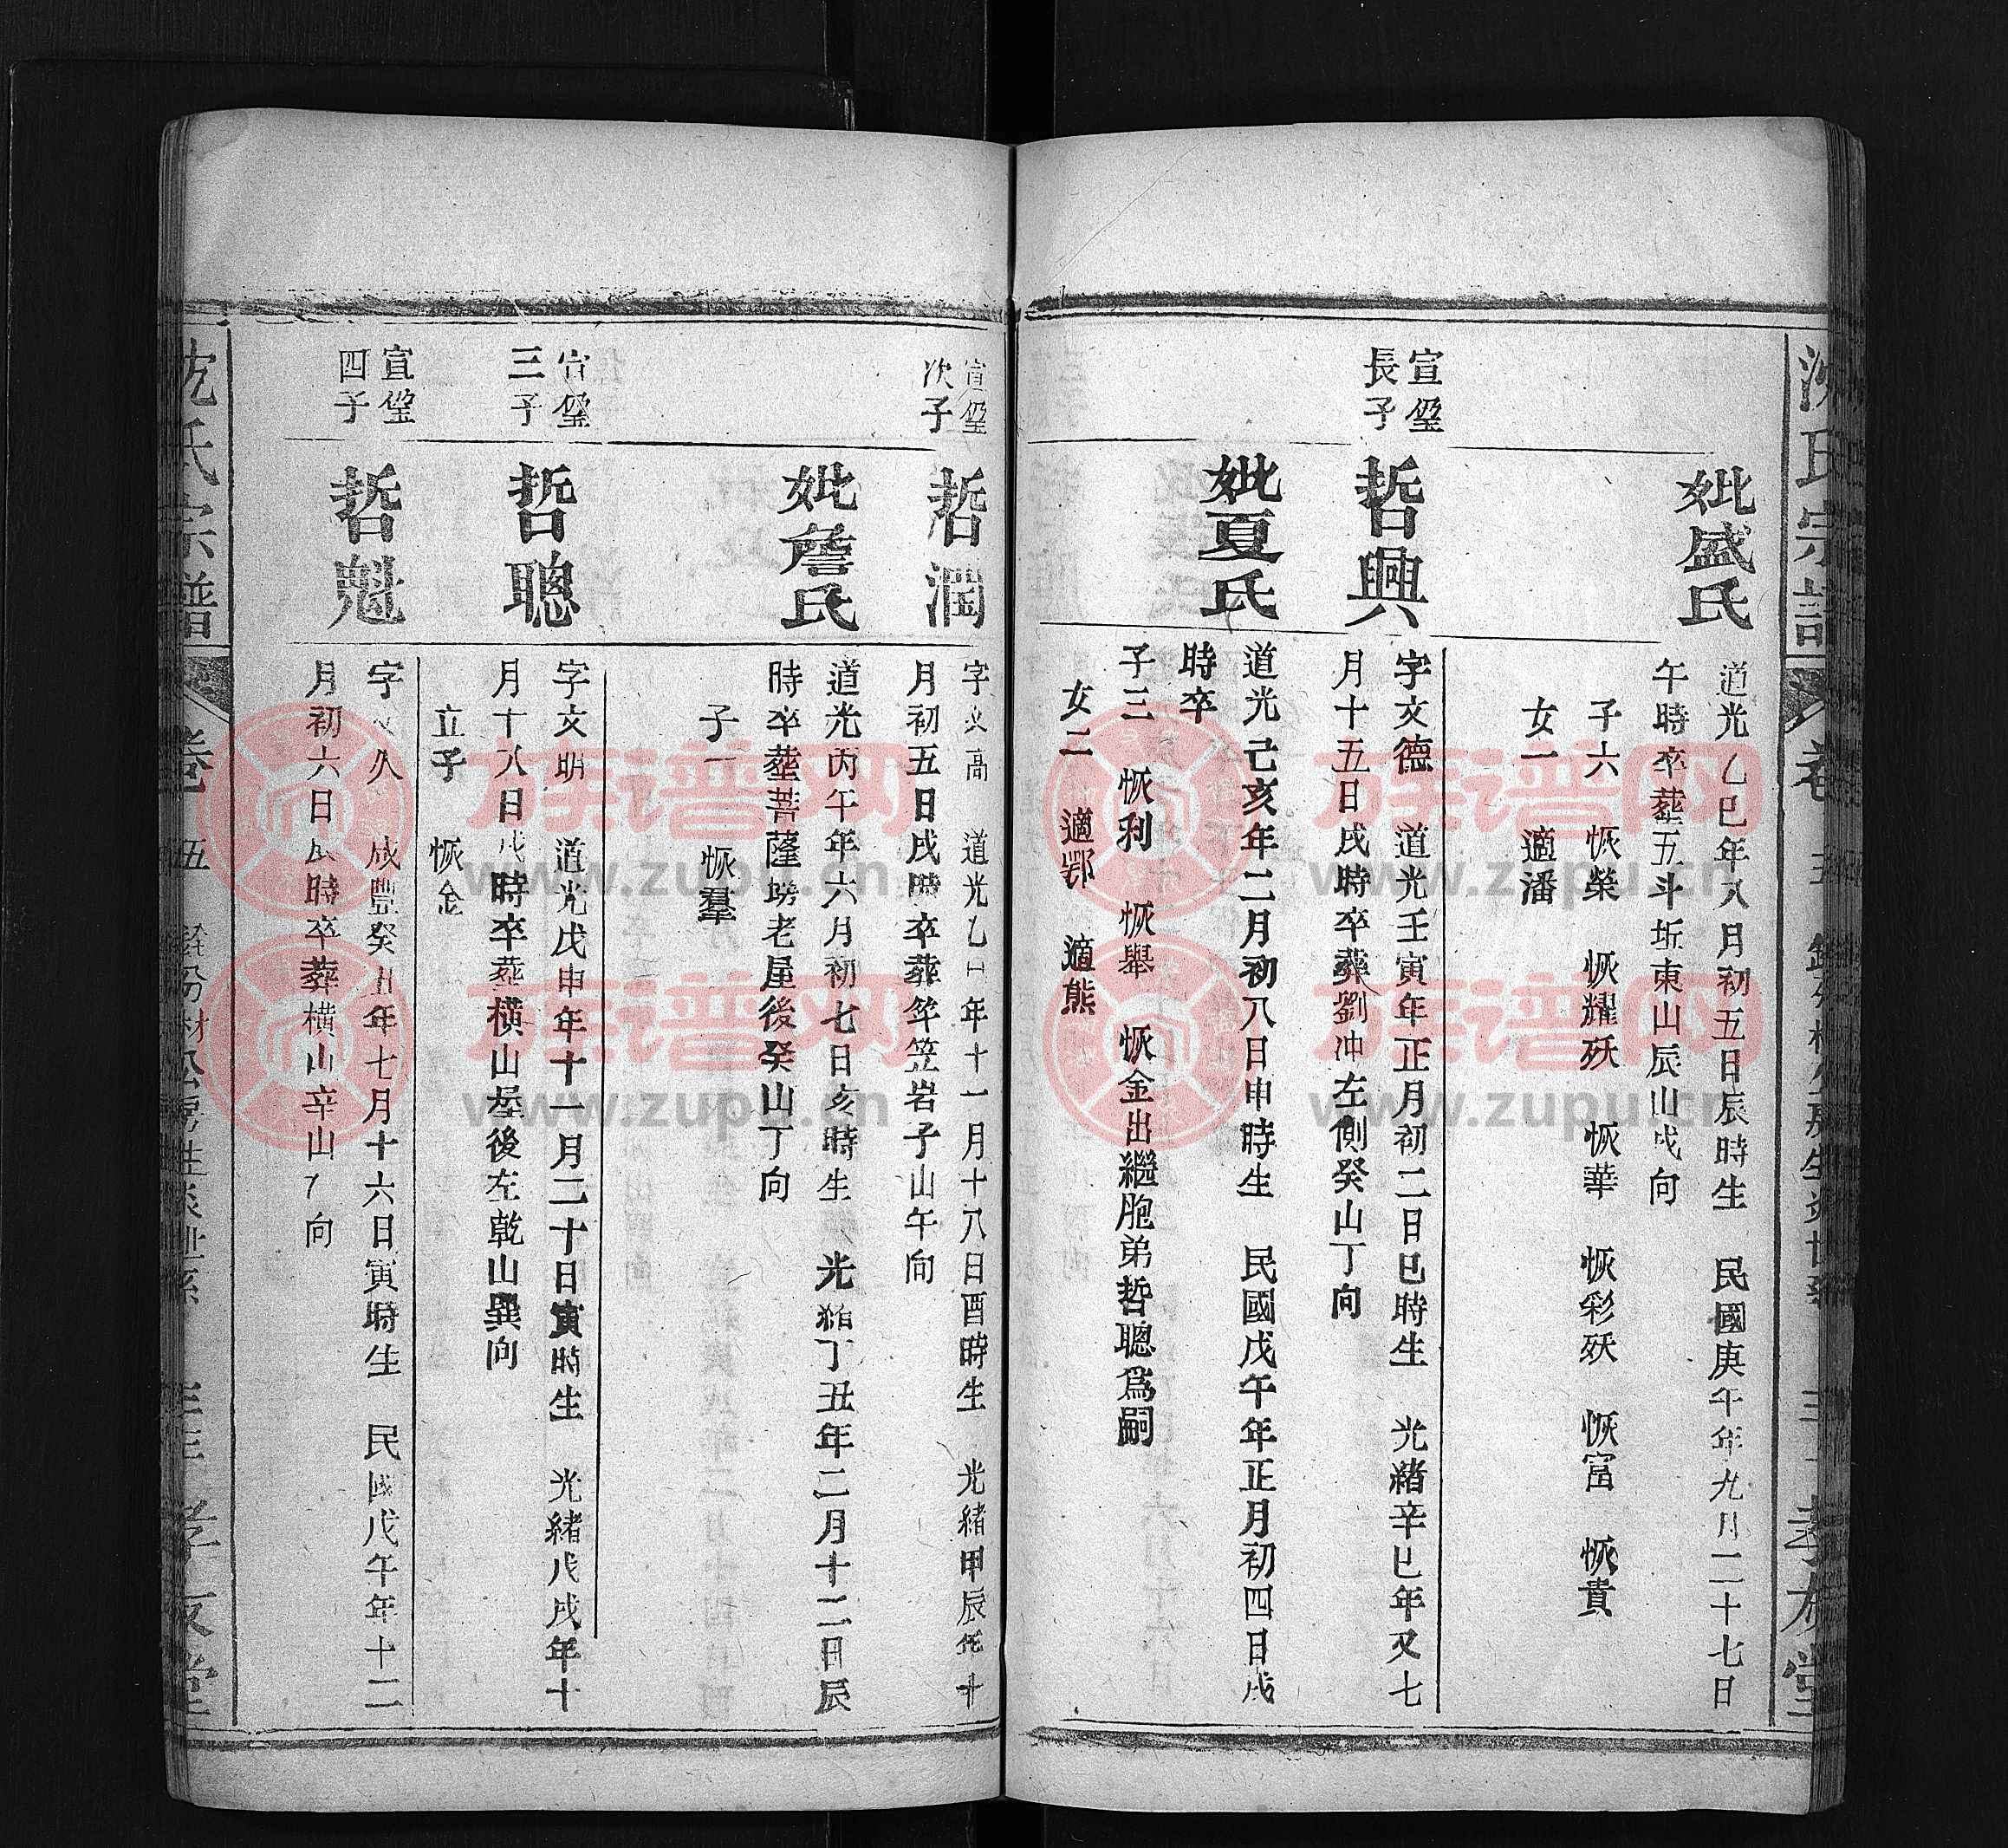 沈氏宗譜
卷
五
孝友堂
妣盛氏
道光乙巳年八月初五日辰時生 民國庚午年九月二十七日
午時卒葬五斗坵東山辰山戌向
子六 恢榮 恢耀殀 恢華 恢彩殀 恢富 恢貴
女一 適潘
宣瑩
長子
哲興
字文德 道光壬寅年正月初二日巳時生 光緒辛巳年又七
月十五日戌時卒葬劉冲左側癸山丁向
妣夏氏
道光己亥年二月初八日申時生 民國戊午年正月初四日戌
時卒
子三 恢利 恢舉 恢金出繼胞弟哲聰爲嗣
女二 適鄂 適熊
宣瑩
次子
哲潤
字文高 道光乙巳年十一月十八日酉時生 光緒甲辰年十
月初五日戌時卒葬笠岩子山午向
妣詹氏
道光丙午年六月初七日亥時生 光緒丁丑年二月十二日辰
時卒葬菩薩塝老屋後癸山丁向
子一 恢羣
宣瑩
三子
哲聰
字文明 道光戊申年十一月二十日寅時生 光緒戊戌年十
月十八日戌時卒葬橫山屋後左乾山巽向
立子 恢金
宣瑩
四子
哲魁
字文久 咸豐癸丑年七月十六日寅時生 民國戊午年十二
月初六日辰時卒葬橫山辛山向
沈氏宗譜
卷五
孝友堂
族谱网
www.zupu.cn
族谱网
www.zupu.cn
族谱网
www.zupu.cn
族谱网
www.zupu.cn